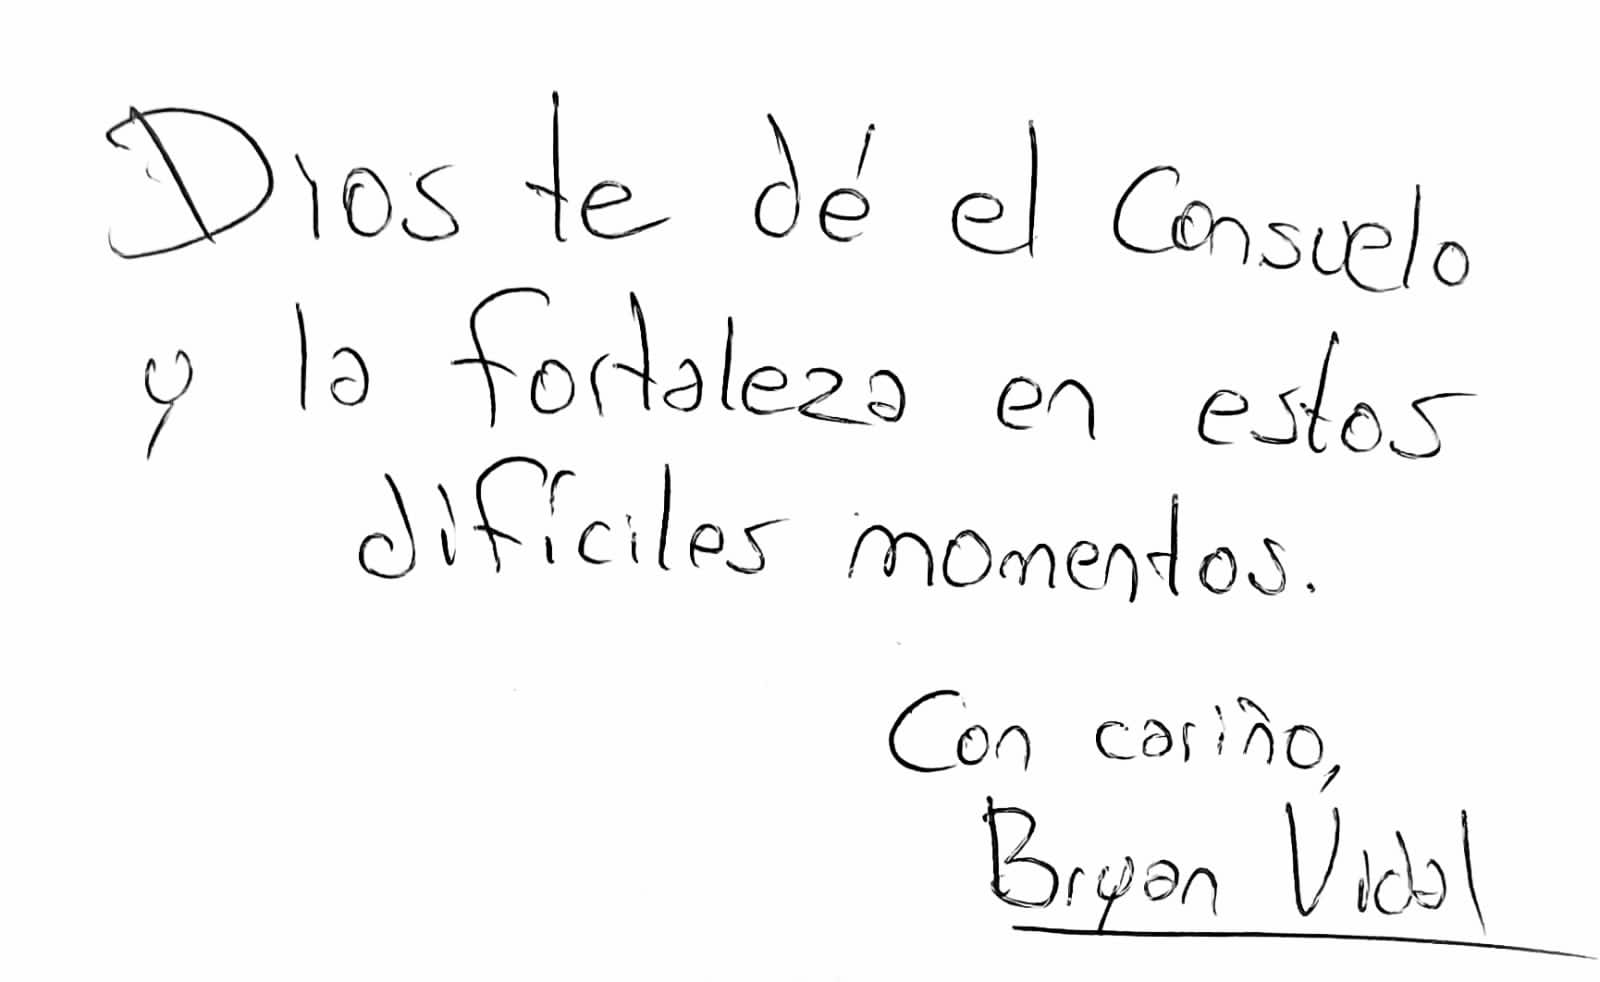 Dios te dé el Consuelo
y la fortaleza en estos
difíciles momentos.
Con cariño,
Bryan Vidal